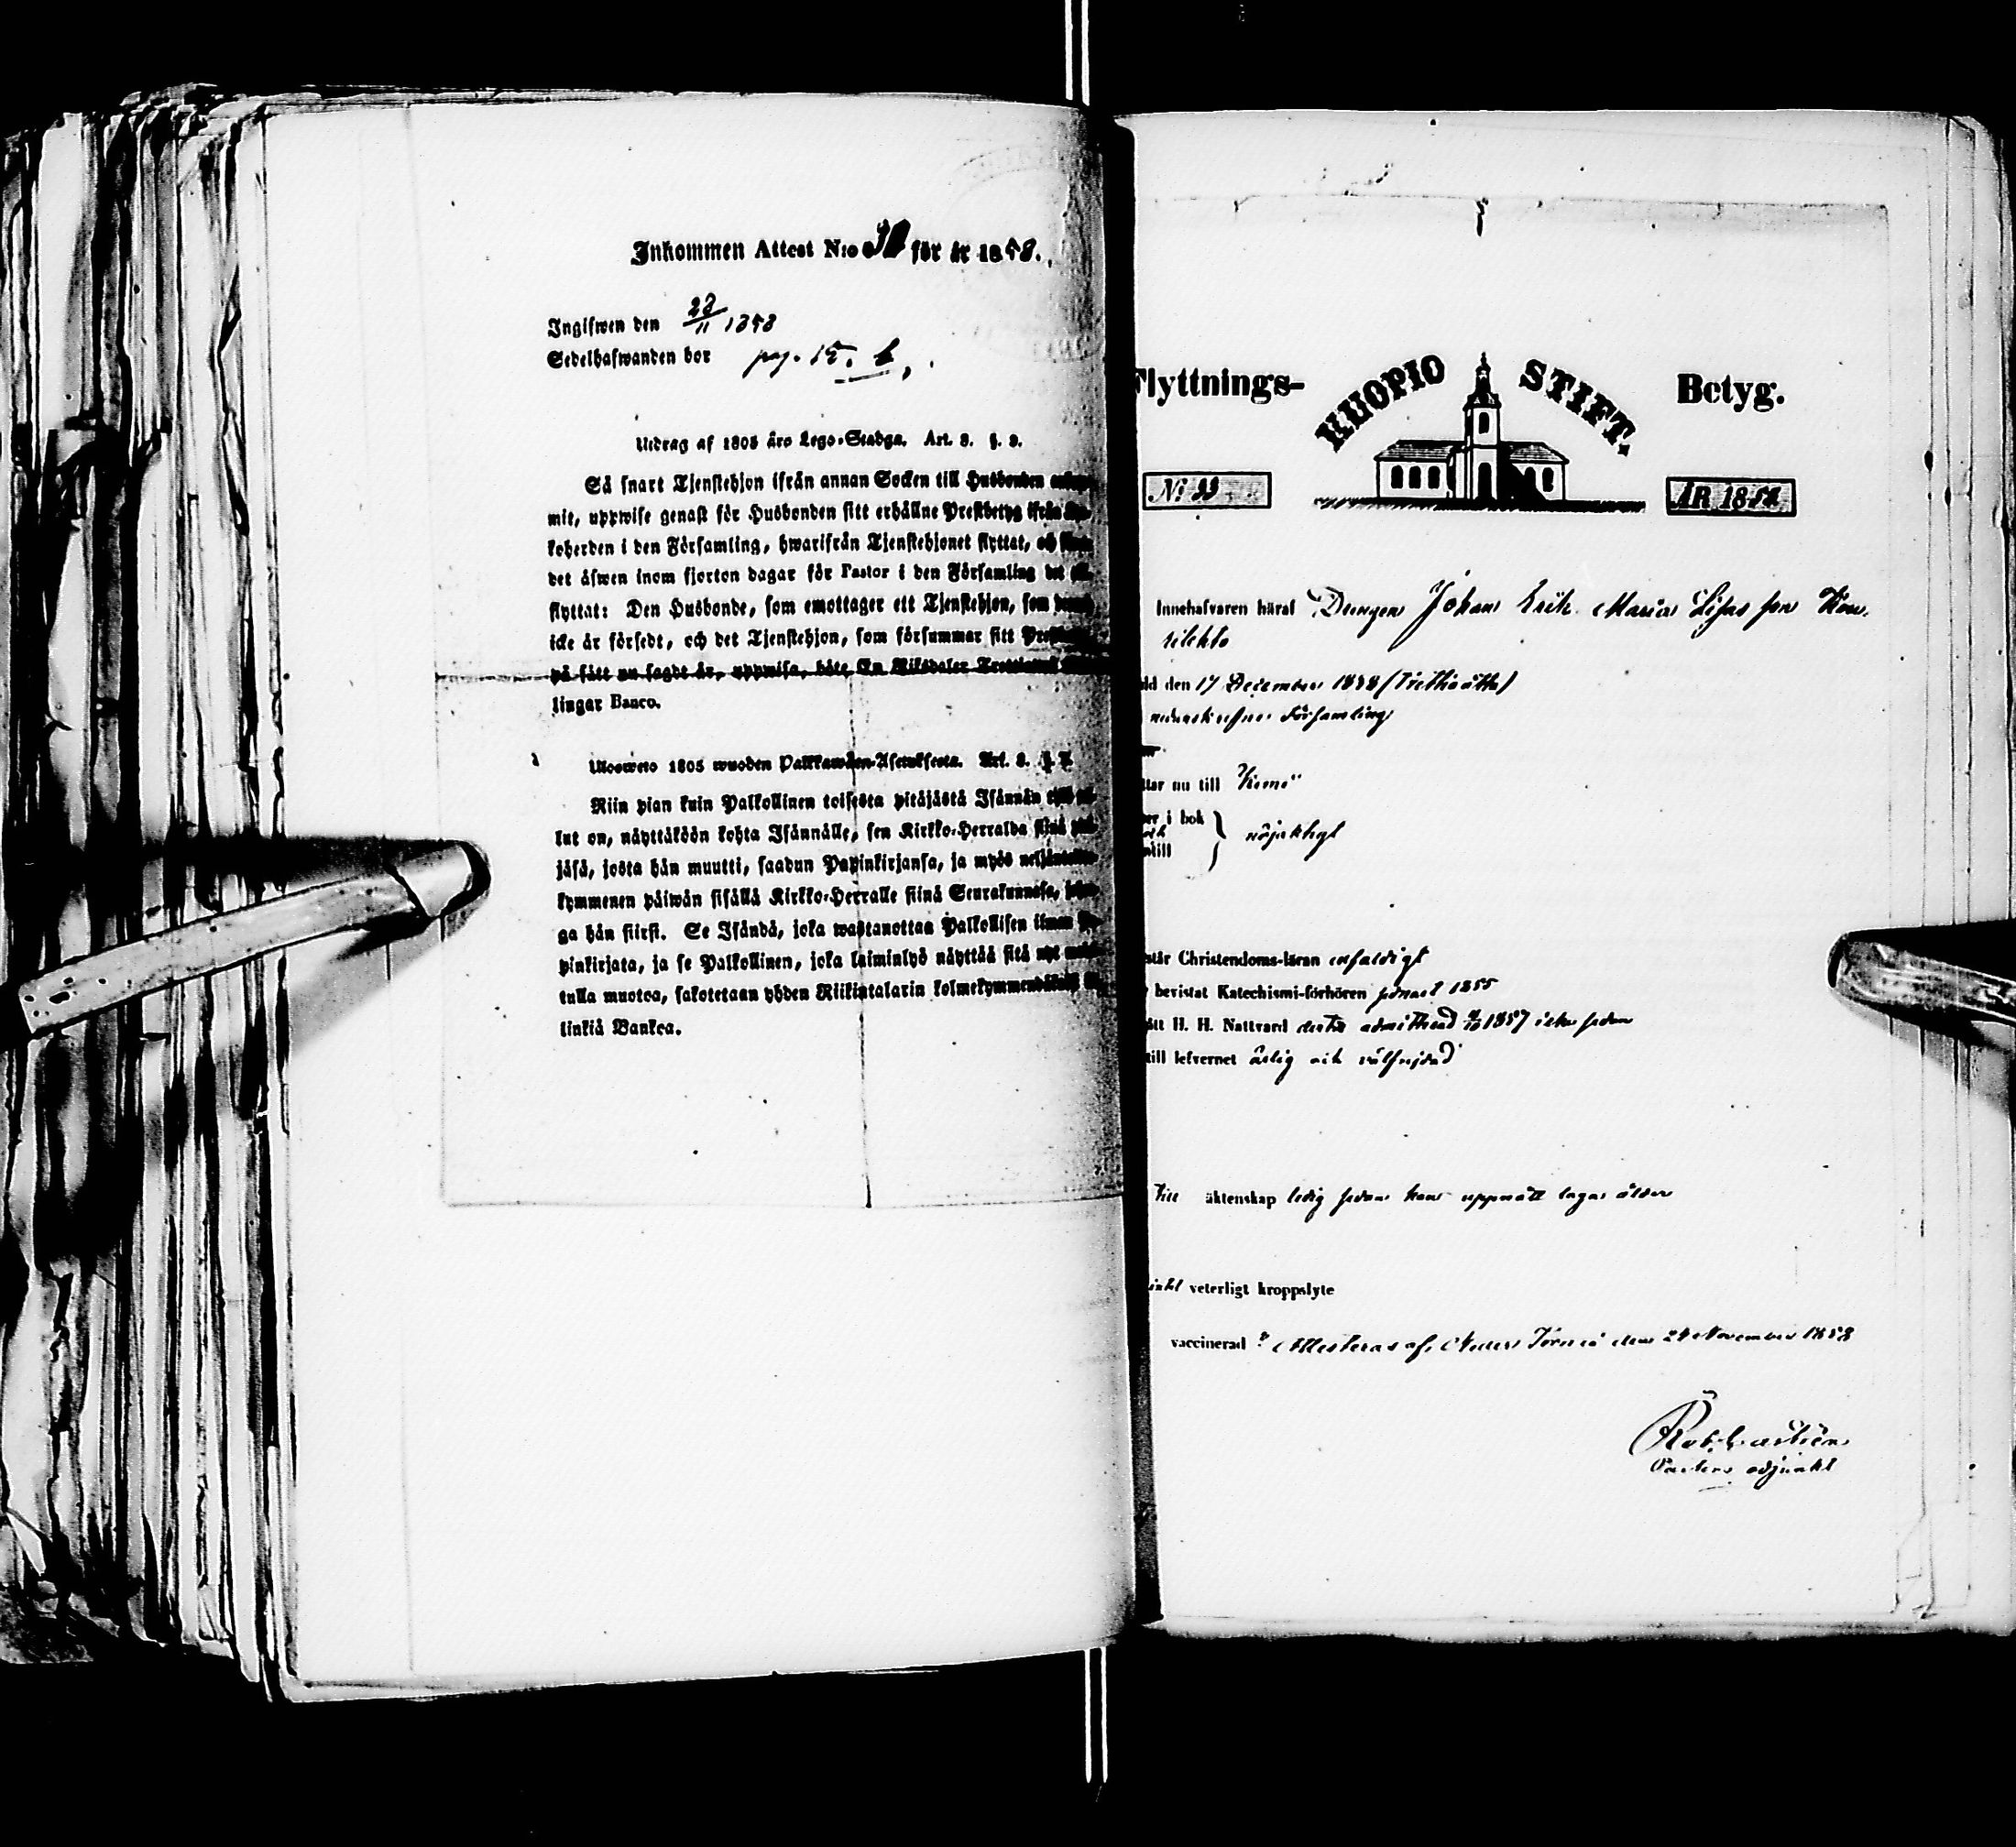 Inkommen Attest N:o för år 1858.
Inglfwen den 23/11 1858
Sedelhafwanden bor pag. 15. b.
Utdrag af 1805 års Lego-Stadga. Art. 8. §. 9.
Så snart Tjenstehjon ifrån annan Socken till Husbonden
mit, uppwise genast för Husbonden sitt erhållne Prestbetyg ifrån
koherden i den Församling, hwarifrån Tjenstehjonet flyttat, och
det äfwen inom fjorton dagar för Pastor i den Församling det
flyttat: Den Husbonde, som emottager ett Tjenstehjon, som
icke är försedt, och det Tjenstehjon, som försummar sitt
på sätt nu sagdt är, uppwisa, böte En Riksdaler Trettiotwå
lingar Banco.
Ulosweto 1805 wuoden Palkkawäen-Asetuksesta. Art. 8. §.
Niin pian kuin Palkollinen toisesta pitäjästä Isännän
lut on, näyttäköön kohta Isännälle, sen Kirkko-Herralda siinä
jäsä, josta hän muutti, saadun Papinkirjansa, ja myös
kymmenen päiwän sisällä Kirkko-Herralle siinä Seurakunnasa,
ga hän siirsi. Se Isändä, joka wastanottaa Palkollisen ilman
pinkirjata, ja se Palkollinen, joka laiminlyö näyttää sitä nyt
tulla muotoa, sakotetaan yhden Riikintalarin
linkiä Bankoa.
Flyttnings- KUOPIO STIFT. Betyg.
N:o 33
ÅR 1858
Innehafvaren häraf Drengen Johan Erik Maria Lisas son
den 17 December 1838 (Trettioåtta)
Församling
nu till Kemi
i bok
nöjaktigt
Christendoms-läran enfaldigt
bevistat Katechismi-förhören senast 1855
H. H. Nattvard admitterad 1857 icke sedan
till lefvernet ärlig och välfrejdad
Till äktenskap ledig sedan han uppnått laga ålder
veterligt kroppslyte
vaccinerad ? Attesteras af Neder Torneå den 24 November 1858
adjunkt